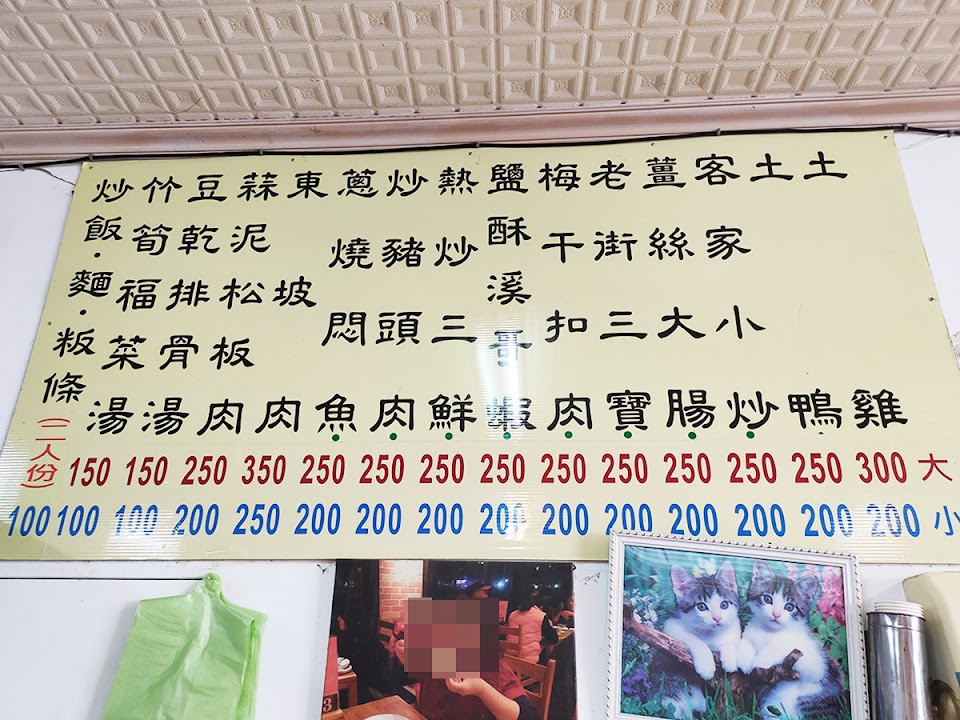 土雞
土鴨
客家小炒
薑絲大腸
老街三寶
梅干扣肉
鹽酥溪哥蝦
熱炒三鮮
炒豬頭肉
蔥燒悶魚
東坡肉
蒜泥松板肉
豆乾排骨湯
竹筍福菜湯
炒飯．麵．粄條(二人份)
150 150 250 350 250 250 250 250 250 250 250 250 250 300 大
100 100 100 200 250 200 200 200 200 200 200 200 200 200 200 小